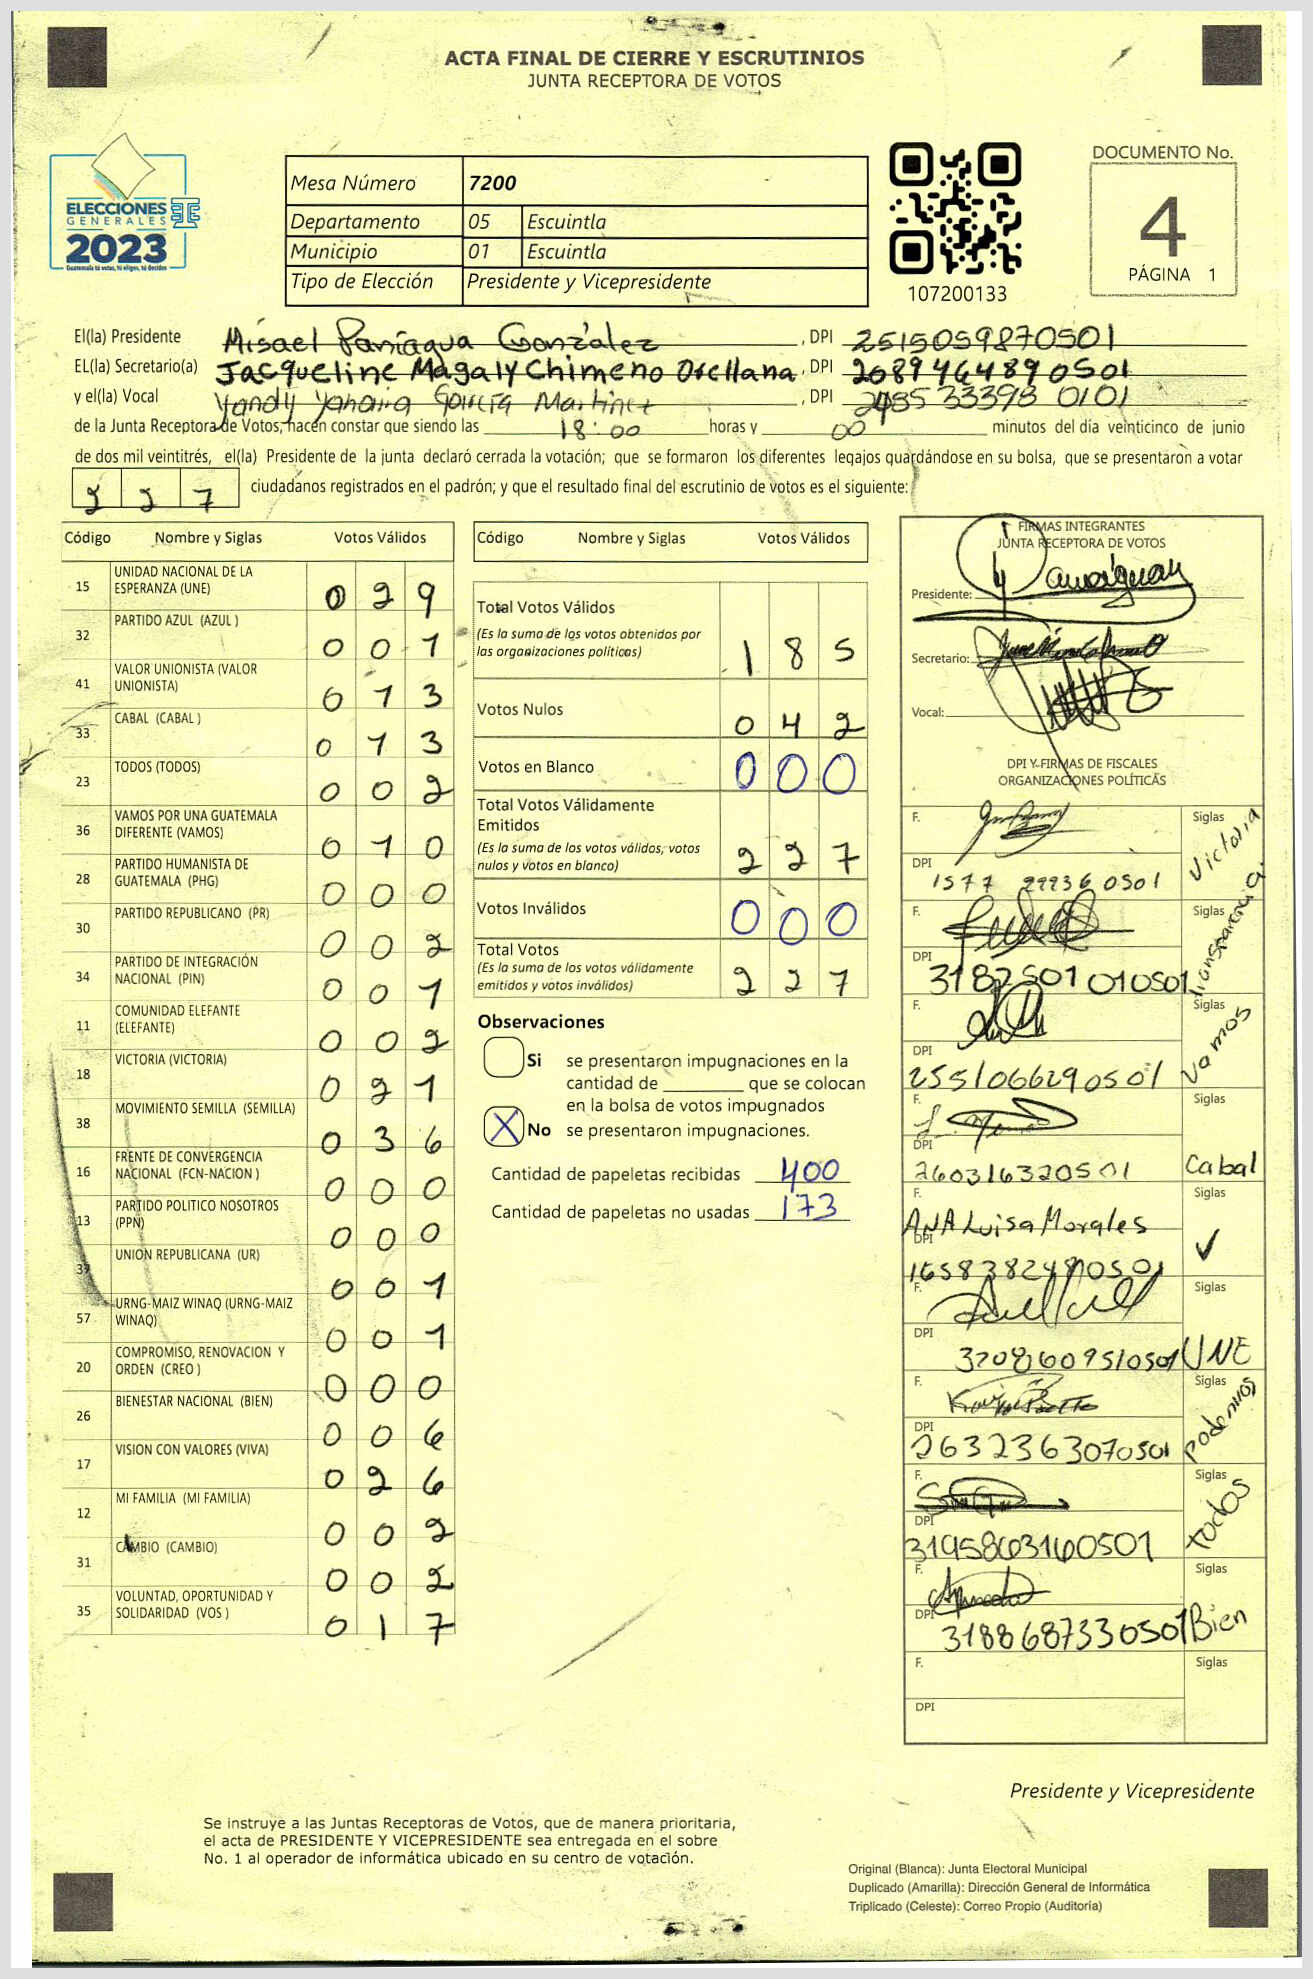 ACTA FINAL DE CIERRE Y ESCRUTINIOS
JUNTA RECEPTORA DE VOTOS
ELECCIONES
GENERALES
2023
Guatemala tú votas, tú eliges, tú decides
Mesa Número 7200
Departamento 05 Escuintla
Municipio 01 Escuintla
Tipo de Elección Presidente y Vicepresidente
107200133
DOCUMENTO No.
4
PÁGINA 1
El(la) Presidente Misael Paniagua González, DPI 2515059870501
EL(la) Secretario(a) Jacqueline Magaly Chimeno Orellana, DPI 2089464890501
y el(la) Vocal Yandy Yahaira García Martínez, DPI 2485333980101
de la Junta Receptora de Votos, hacen constar que siendo las 18:00 horas y 00 minutos del día veinticinco de junio
de dos mil veintitrés, el(la) Presidente de la junta declaró cerrada la votación; que se formaron los diferentes legajos guardándose en su bolsa, que se presentaron a votar
227 ciudadanos registrados en el padrón; y que el resultado final del escrutinio de votos es el siguiente:
Código Nombre y Siglas Votos Válidos
15 UNIDAD NACIONAL DE LA ESPERANZA (UNE) 029
32 PARTIDO AZUL (AZUL ) 001
41 VALOR UNIONISTA (VALOR UNIONISTA) 013
33 CABAL (CABAL ) 013
23 TODOS (TODOS) 002
36 VAMOS POR UNA GUATEMALA DIFERENTE (VAMOS) 010
28 PARTIDO HUMANISTA DE GUATEMALA (PHG) 000
30 PARTIDO REPUBLICANO (PR) 002
34 PARTIDO DE INTEGRACIÓN NACIONAL (PIN) 001
11 COMUNIDAD ELEFANTE (ELEFANTE) 002
18 VICTORIA (VICTORIA) 021
38 MOVIMIENTO SEMILLA (SEMILLA) 036
16 FRENTE DE CONVERGENCIA NACIONAL (FCN-NACION ) 000
13 PARTIDO POLITICO NOSOTROS (PPN) 000
39 UNION REPUBLICANA (UR) 001
57 URNG-MAIZ WINAQ (URNG-MAIZ WINAQ) 001
20 COMPROMISO, RENOVACION Y ORDEN (CREO ) 000
26 BIENESTAR NACIONAL (BIEN) 006
17 VISION CON VALORES (VIVA) 026
12 MI FAMILIA (MI FAMILIA) 002
31 CAMBIO (CAMBIO) 002
35 VOLUNTAD, OPORTUNIDAD Y SOLIDARIDAD (VOS ) 017
Código Nombre y Siglas Votos Válidos
Total Votos Válidos 185
(Es la suma de los votos obtenidos por
las organizaciones políticas)
Votos Nulos 042
Votos en Blanco 000
Total Votos Válidamente
Emitidos
(Es la suma de los votos válidos, votos
nulos y votos en blanco) 227
Votos Inválidos 000
Total Votos
(Es la suma de los votos válidamente
emitidos y votos inválidos) 227
Observaciones
Si se presentaron impugnaciones en la
cantidad de ________ que se colocan
en la bolsa de votos impugnados
X No se presentaron impugnaciones.
Cantidad de papeletas recibidas 400
Cantidad de papeletas no usadas 173
FIRMAS INTEGRANTES
JUNTA RECEPTORA DE VOTOS
Presidente:
Secretario:
Vocal:
DPI Y FIRMAS DE FISCALES
ORGANIZACIONES POLÍTICAS
F. Siglas Victoria
DPI
F. Siglas transparencia
DPI 3182501010501
F. Siglas Vamos
DPI 2551066290501
F. Siglas Cabal
DPI 260316320501
F. ANA Luisa Morales Siglas ✓
DPI 1658382480501
F. Siglas UNE
DPI 3208609510501
F. Siglas podemos
DPI 2632363070501
F. Siglas todos
DPI 3195863160501
F. Siglas Bien
DPI 3188687330501
F. Siglas
DPI
Presidente y Vicepresidente
Se instruye a las Juntas Receptoras de Votos, que de manera prioritaria,
el acta de PRESIDENTE Y VICEPRESIDENTE sea entregada en el sobre
No. 1 al operador de informática ubicado en su centro de votación.
Original (Blanca): Junta Electoral Municipal
Duplicado (Amarilla): Dirección General de Informática
Triplicado (Celeste): Correo Propio (Auditoría)